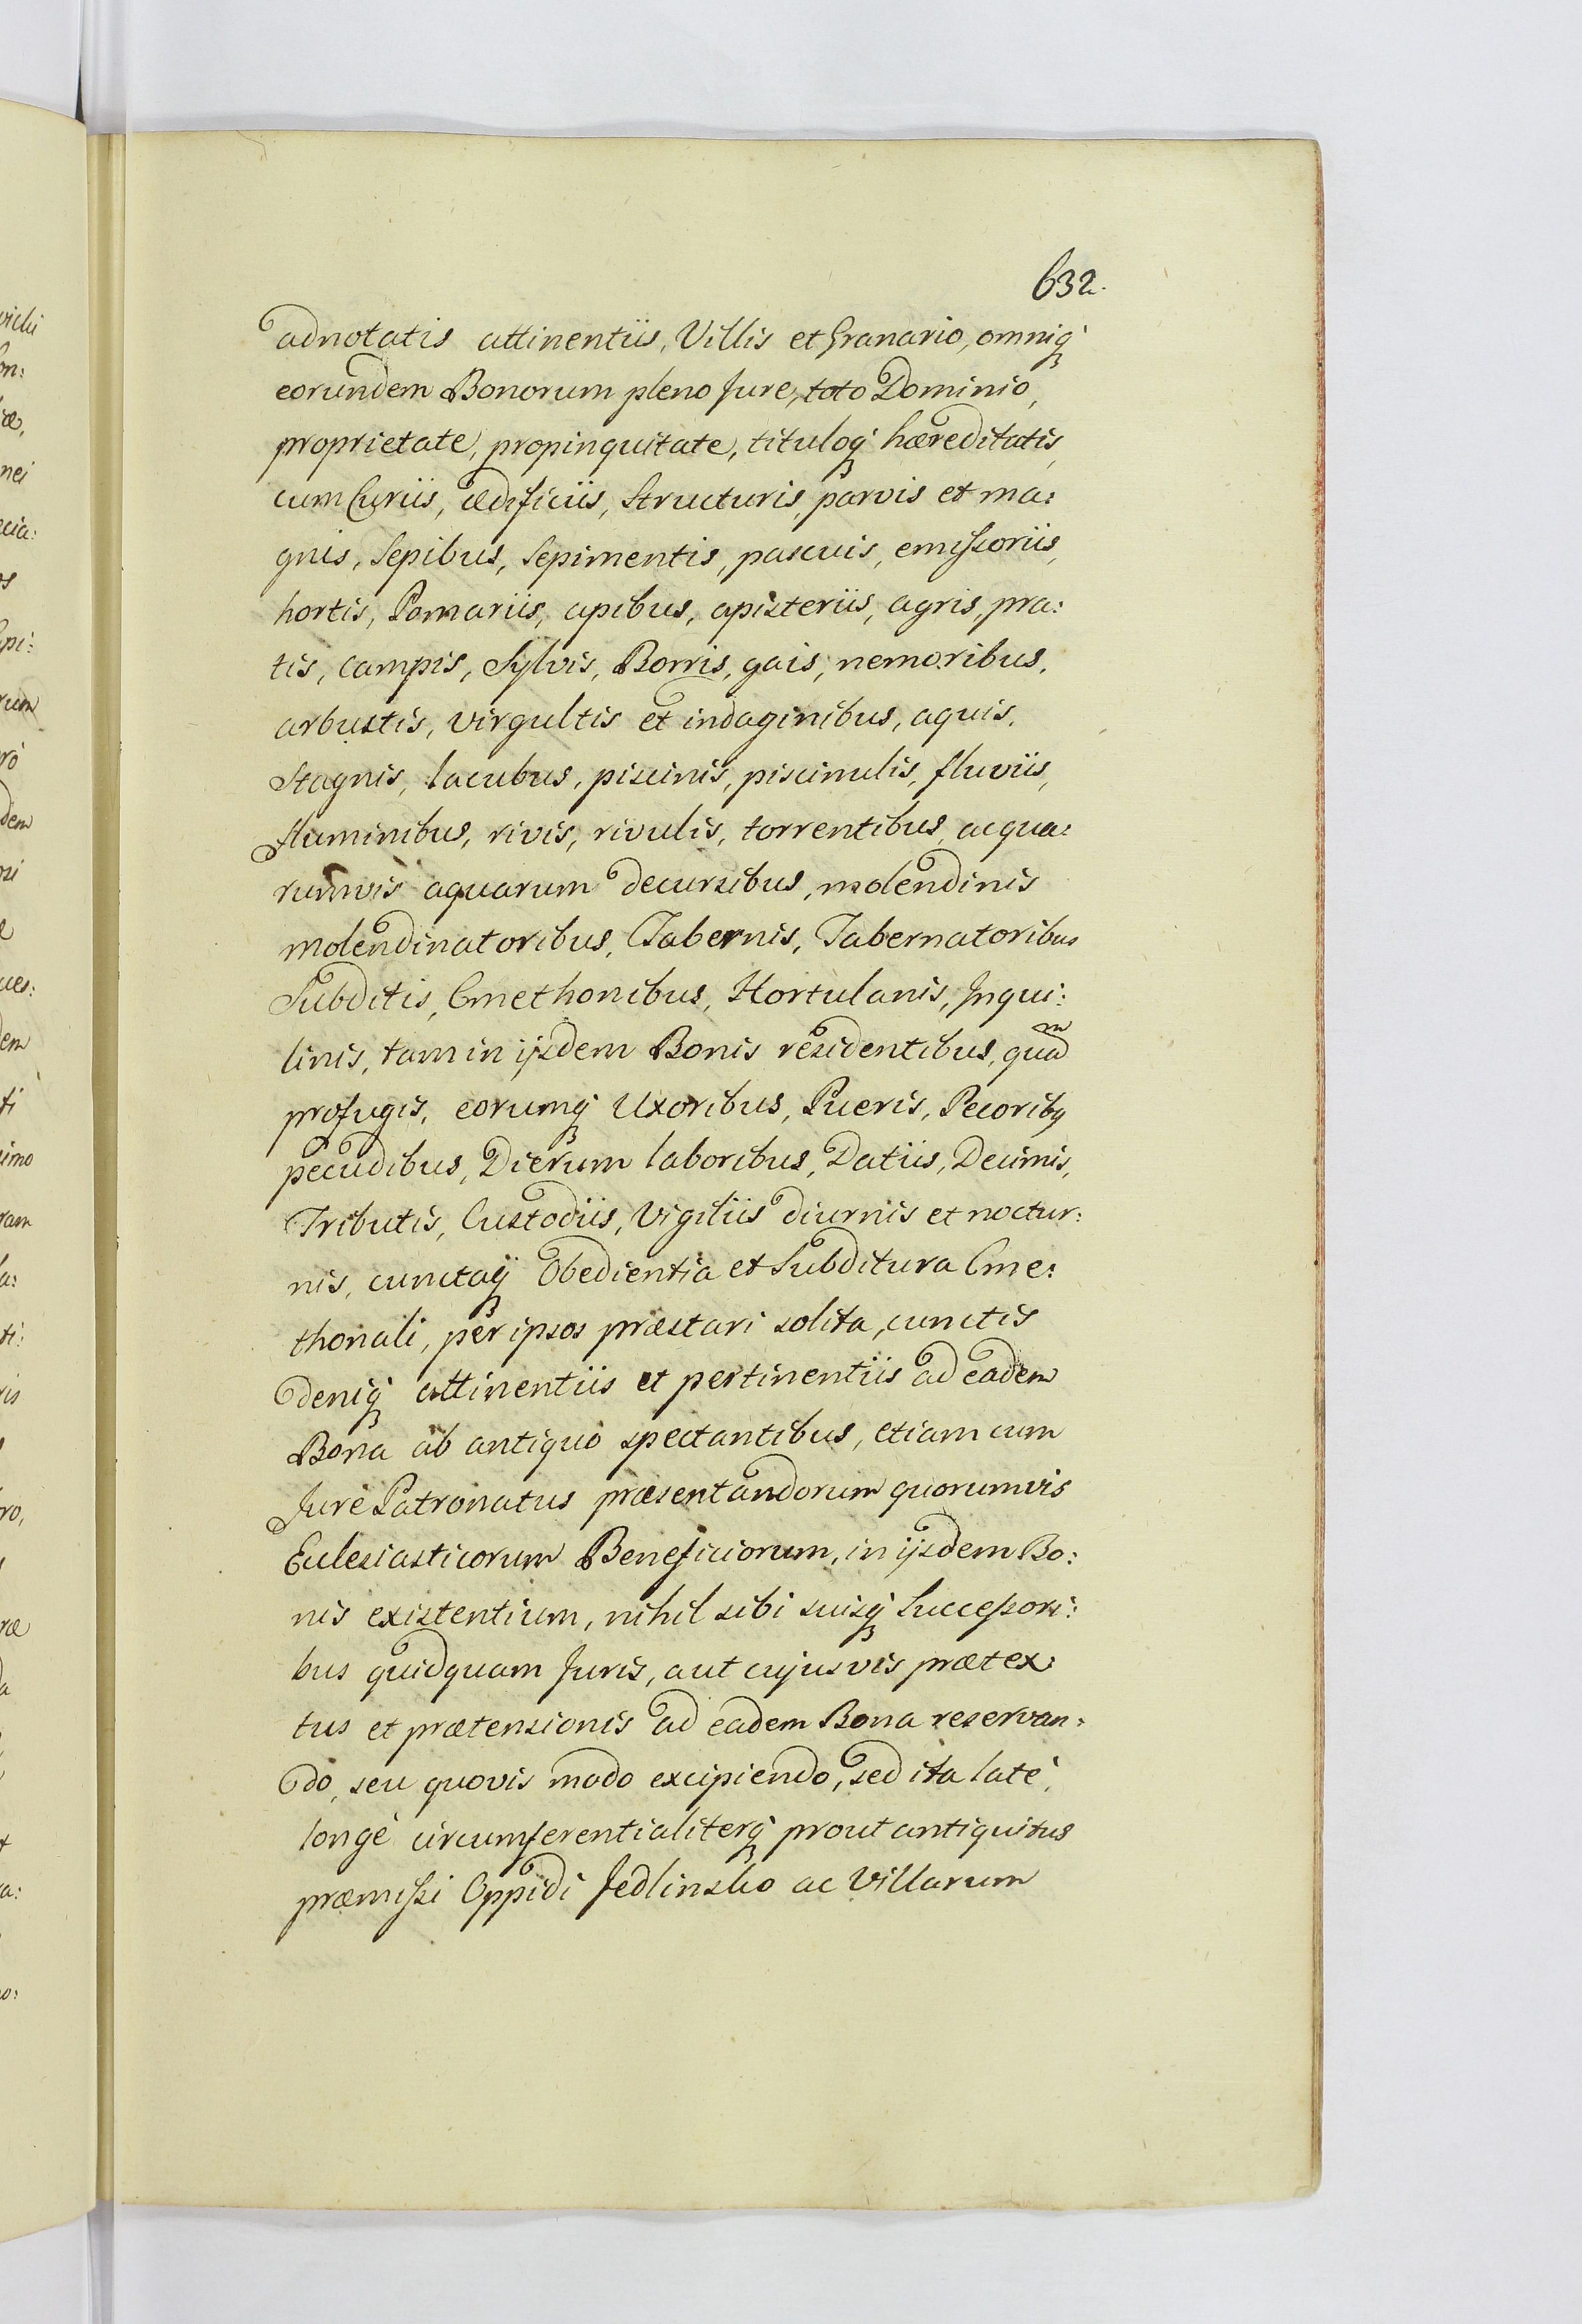 632.
adnotatis attinentiis, Villis et Granario, omniq́
eorundem Bonorum pleno Jure, toto Dominio,
proprietate, propinquitate, tituloq́ hæreditatis,
cum Curiis, ædificiis, Structuris, parvis et ma:
gnis, Sepibus, Sepimentis, pascuis, emissoriis,
hortis, Pomariis, apibus, apisteriis, agris, pra:
tis, campis, Sylvis, Borris, gais, nemoribus,
arbustis, virgultis et indaginibus, aquis,
Stagnis, lacubus, piscinis, piscinulis, fluviis,
fluminibus, rivis, rivulis, torrentibus, acqua:
rumvis aquarum decursibus, molendinis
molendinatoribus, Tabernis, Tabernatoribus
Subditis, Cmethonibus, Hortulanis, Inqui:
linis, tam in ijsdem Bonis residentibus, quam
profugis, eorumq́ Uxoribus, Pueris, Pecoribq
pecudibus, Dierum laboribus, Datiis, Decimis,
Tributis, Custodiis, Vigiliis diurnis et noctur:
nis, cunctaq́ Obedientia et Subditura Cme:
thonali, per ipsos præstari solita, cunctis
deniq́ attinentiis et pertinentiis ad eadem
Bona ab antiquo spectantibus, etiam cum
Jure Patronatus præsentandorum quorumvis
Ecclesiasticorum Beneficiorum, in ijsdem Bo:
nis existentium, nihil sibi suisq́ Successori:
bus quidquam Juris, aut cujusvis prætex:
tus et prætensionis ad eadem Bona reservan:
do, seu quovis modo excipiendo, sed ita latè,
longè circumferentialiterq́ prout antiquitus
præmissi Oppidi Jedlinsko ac Villarum